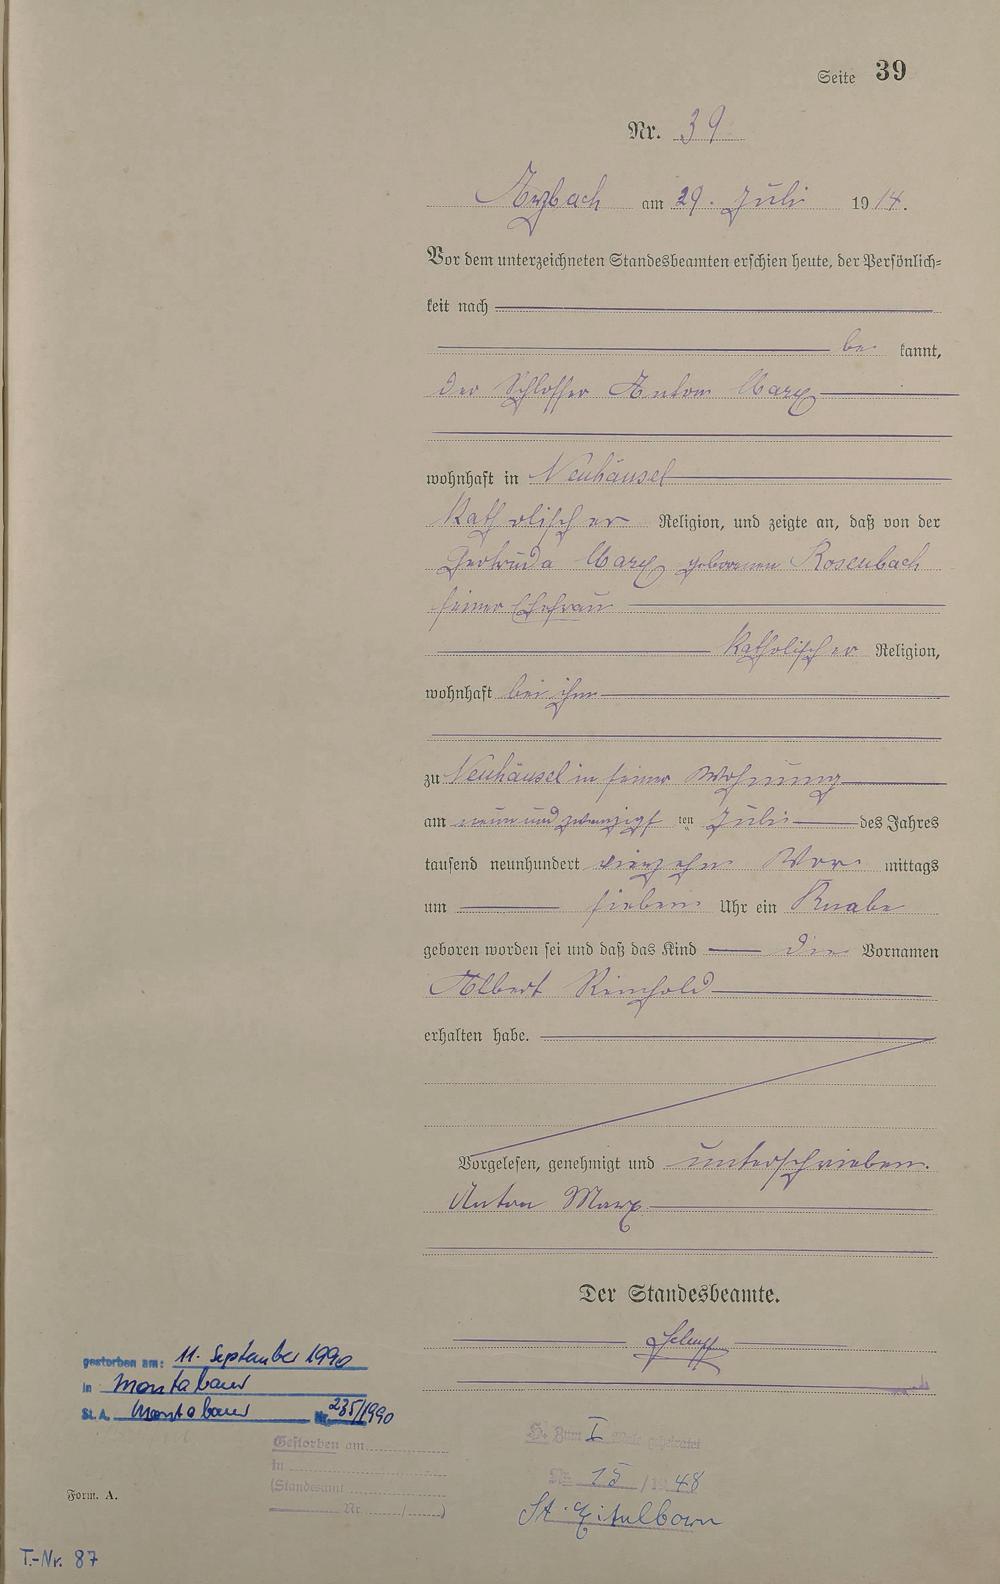 Seite 39
Nr. 39
Arzbach am 29. Juli 1914.
Vor dem unterzeichneten Standesbeamten erschien heute, der Persönlich-
keit nach
be kannt,
der Schlosser Anton Marx
wohnhaft in Neuhäusel
katholischer Religion, und zeigte an, daß von der
Gertruda Marx geborenen Rosenbach
seiner Ehefrau
katholischer Religion,
wohnhaft bei ihm
zu Neuhäusel in seiner Wohnung
am neun und zwanzigsten Juli des Jahres
tausend neunhundert vierzehn Vor mittags
um sieben Uhr ein Knabe
geboren worden sei und daß das Kind die Vornamen
Albert Reinhold
erhalten habe.
Vorgelesen, genehmigt und unterschrieben.
Anton Marx
Der Standesbeamte.
gestorben am: 11. September 1990
in Montabaur
St. A. Montabaur Nr. 235/1990
Gestorben am
In
(Standesamt
Nr. / )
Zum I Male geheiratet
Nr. 15 / 1948
St. Eitelborn
Form. A.
T.-Nr. 87